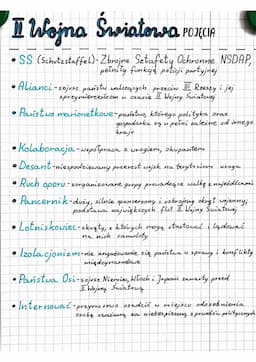 II Wojna Światowa POJĘCIA
• SS (Schutzstaffel) - Zbrojne Sztafety Ochronne NSDAP,
pełniły funkcję policji partyjnej
• Alianci - sojusz państw walczących przeciw III Rzeszy i jej
sprzymierzeńcom w czasie II Wojny Światowej
• Państwo marionetkowe - państwo, którego polityka oraz
gospodarka są w pełni zależne od innego
kraju
• Kolaboracja - współpraca z wrogiem, okupantem
• Desant - niespodziewany przerzut wojsk na terytorium wroga
• Ruch oporu - zorganizowane grupy prowadzące walkę z najeźdźcami
• Pancernik - duży, silnie opancerzony i uzbrojony okręt wojenny;
podstawa największych flot II Wojny Światowej
• Lotniskowiec - okręty, z których mogą startować i lądować
na nich samoloty
• Izolacjonizm - nie angażowanie się państwa w spory i konflikty
międzynarodowe
• Państwa Osi - sojusz Niemiec, Włoch i Japonii zawarty przed
II Wojną Światową
• Internować - przymusowo osadzić w miejscu odosobnienia
osobę uważaną za niebezpieczną z powodów politycznych